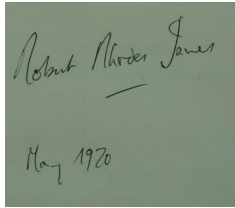 Robert Rhodes James
May 1970